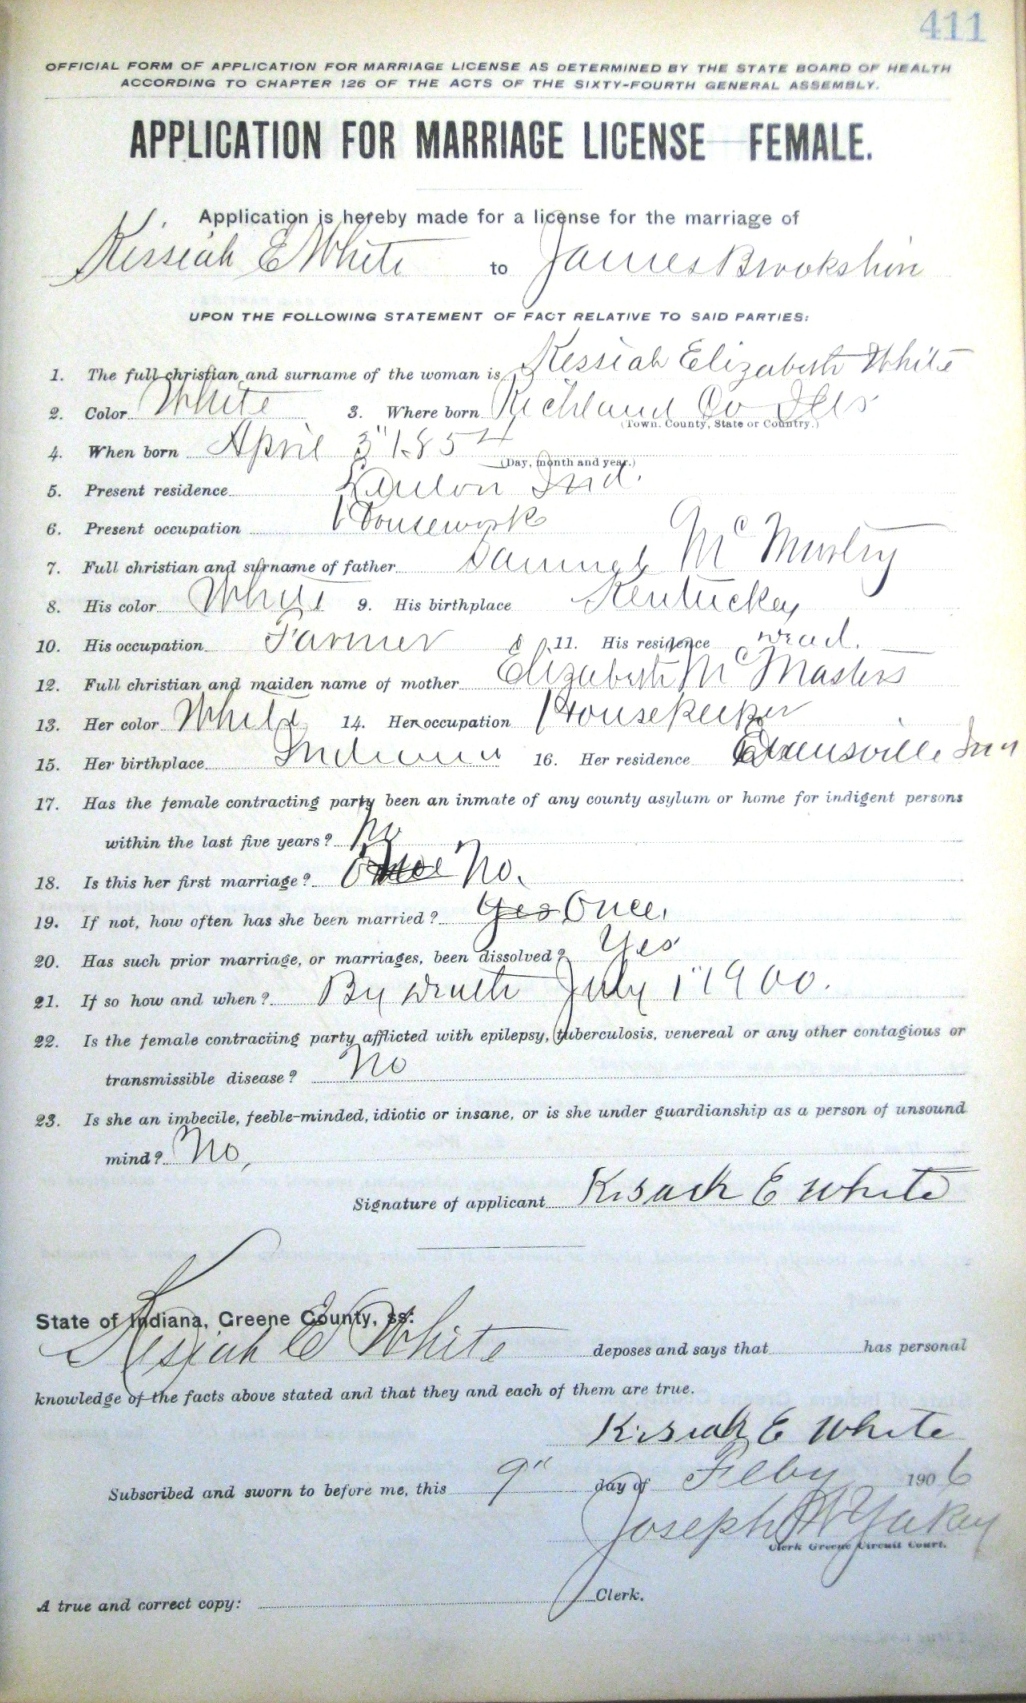 411
OFFICIAL FORM OF APPLICATION FOR MARRIAGE LICENSE AS DETERMINED BY THE STATE BOARD OF HEALTH
ACCORDING TO CHAPTER 126 OF THE ACTS OF THE SIXTY-FOURTH GENERAL ASSEMBLY.
APPLICATION FOR MARRIAGE LICENSE FEMALE.
Application is hereby made for a license for the marriage of
Kissiah E White to James Brookshin
UPON THE FOLLOWING STATEMENT OF FACT RELATIVE TO SAID PARTIES:
1. The full christian and surname of the woman is Kessiah Elizabeth White
2. Color White 3. Where born Richland Co Ills
(Town, County, State or Country.)
4. When born April 3" 1854
(Day, month and year.)
5. Present residence Ind.
6. Present occupation Housework
7. Full christian and surname of father Samuel Mc
8. His color White 9. His birthplace Kentuckey
10. His occupation Farmer 11. His residence
12. Full christian and maiden name of mother Elizabeth McMasters
13. Her color White 14. Her occupation Housekeeper
15. Her birthplace Indiana 16. Her residence
17. Has the female contracting party been an inmate of any county asylum or home for indigent persons
within the last five years? No
18. Is this her first marriage? No.
19. If not, how often has she been married? Yes Once.
20. Has such prior marriage, or marriages, been dissolved? Yes
21. If so how and when? By Death July 1" 1900.
22. Is the female contracting party afflicted with epilepsy, tuberculosis, venereal or any other contagious or
transmissible disease? No
23. Is she an imbecile, feeble-minded, idiotic or insane, or is she under guardianship as a person of unsound
mind? No,
Signature of applicant E White
State of Indiana, Greene County, ss:
Kesiah E White deposes and says that has personal
knowledge of the facts above stated and that they and each of them are true.
Kisiah E White
Subscribed and sworn to before me, this 9" day of Feby 1906
Joseph W Yakey
Clerk Greene Circuit Court.
A true and correct copy: Clerk.